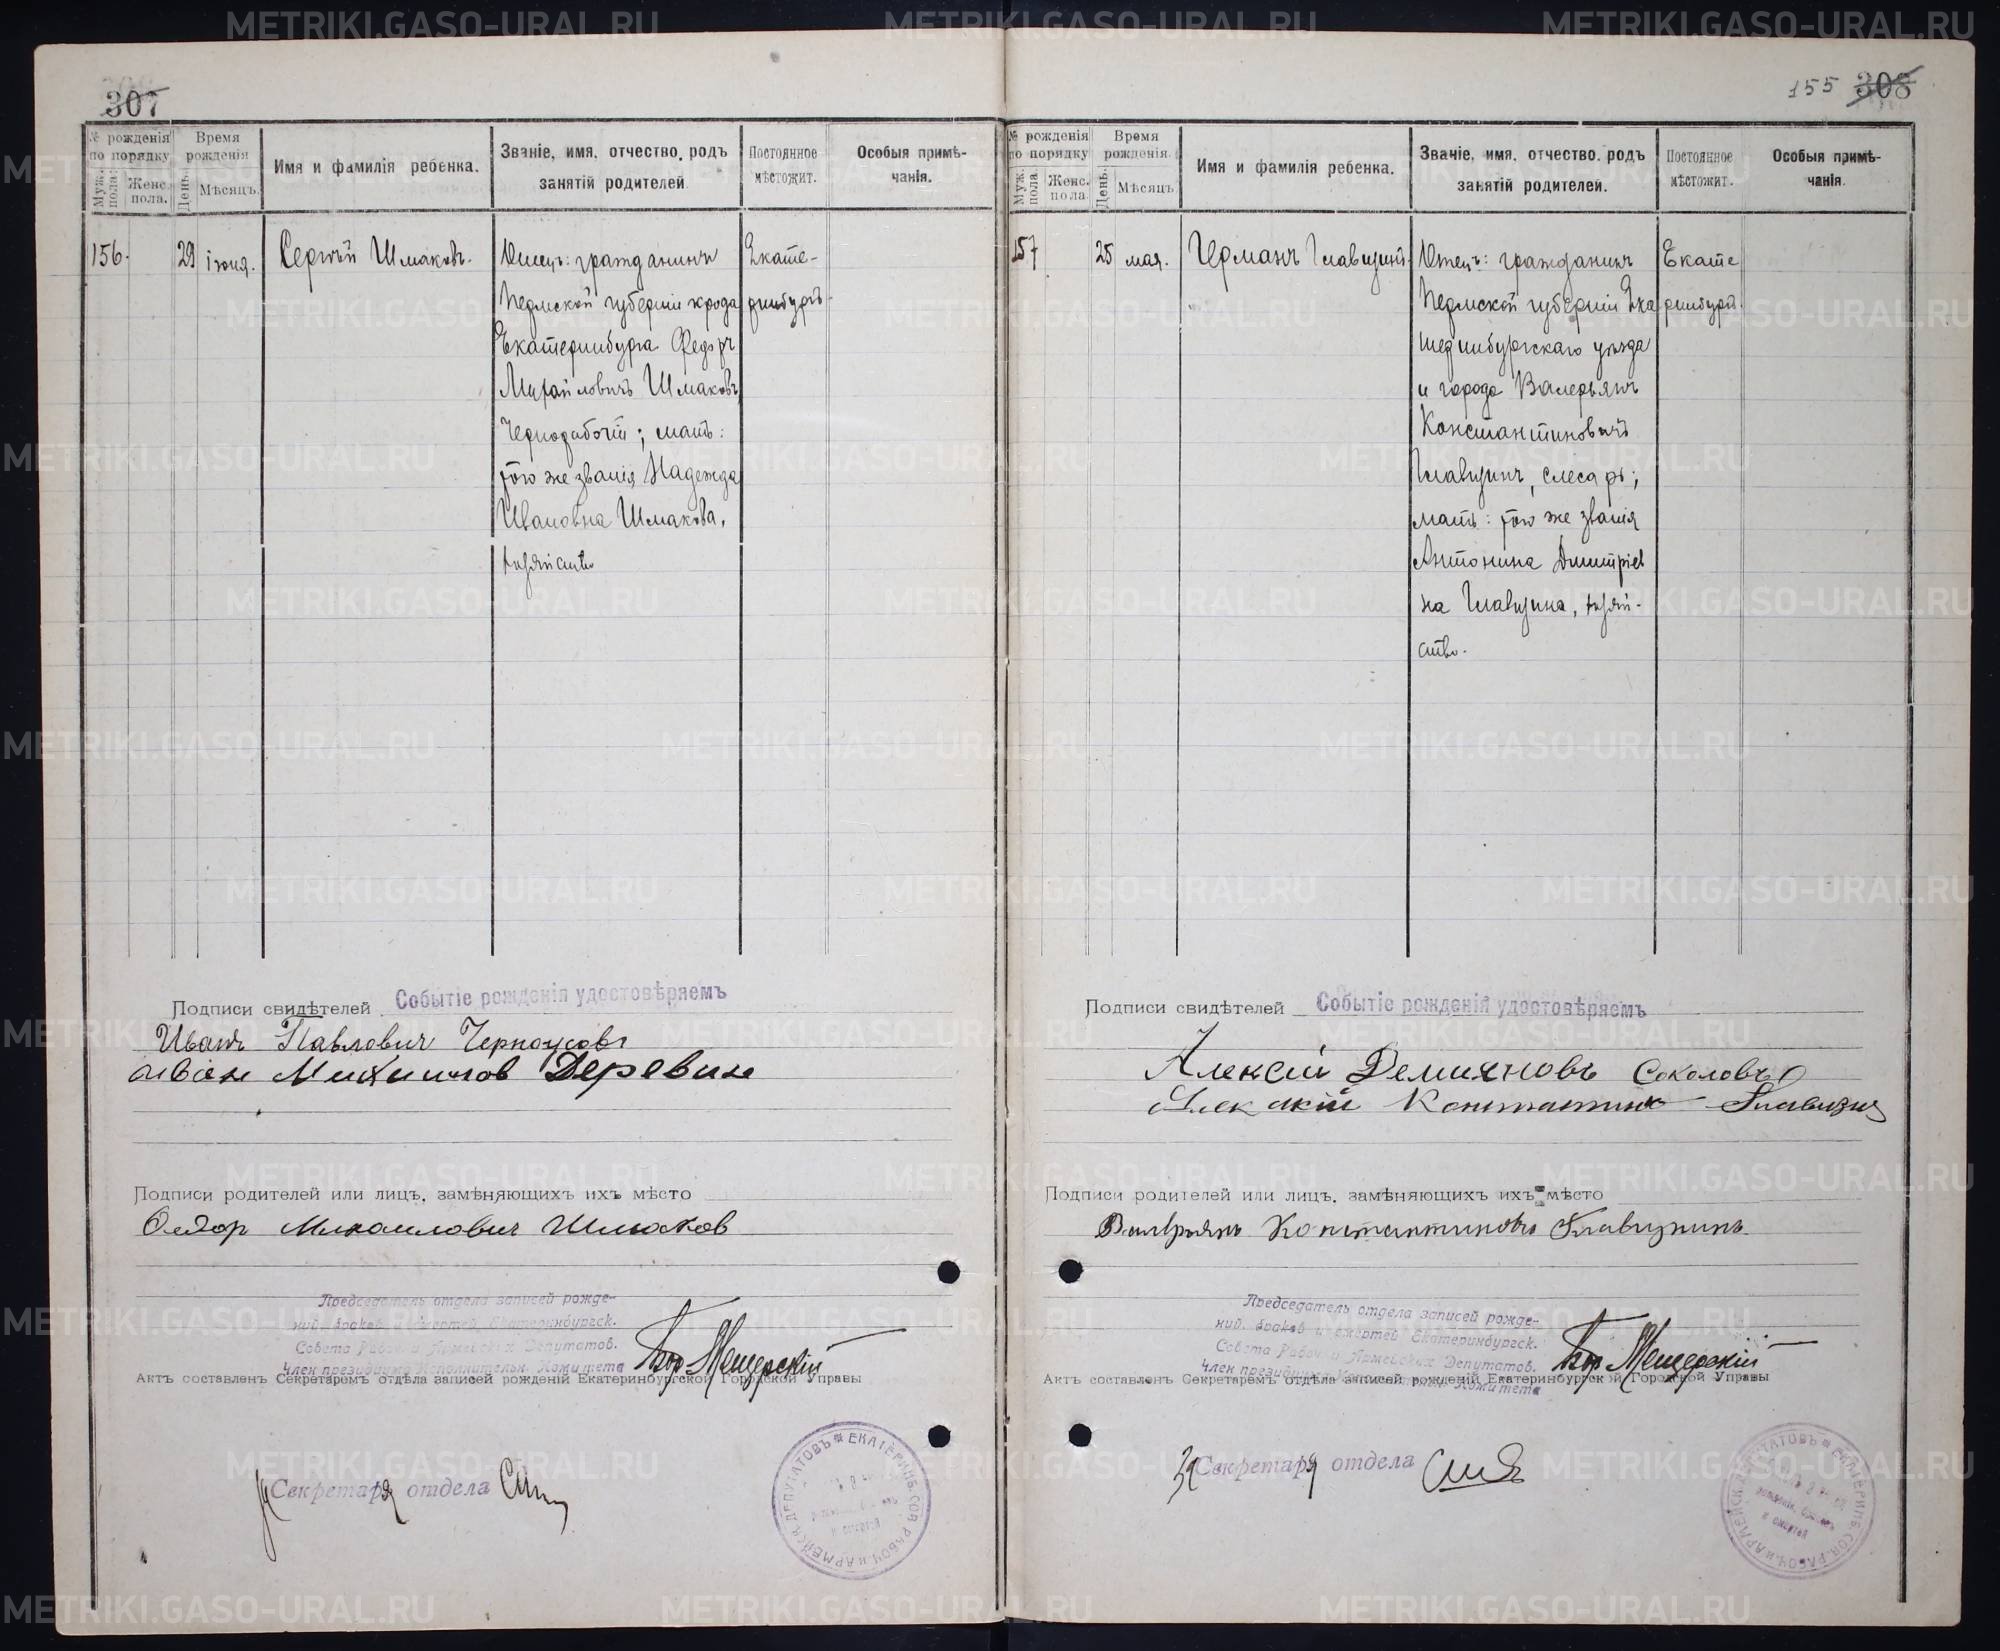 307
№ рожденія
по порядку
Муж. пола.
Женс. пола.
Время
рожденія
День.
Мѣсяцъ.
Имя и фамилія ребенка.
Званіе, имя, отчество, родъ
занятій родителей.
Постоянное
мѣстожит.
Особыя примѣ-
чанія.
156.
29
іюня.
Сергѣй Шмаковъ.
Отецъ: гражданинъ
Пермской губерніи города
Екатеринбурга Федоръ
Михайловичъ Шмаковъ,
Чернорабочій; мать:
того же званія Надежда
Ивановна Шмакова,
хозяйство
Екате-
ринбургъ.
Подписи свидѣтелей
Событіе рожденія удостовѣряемъ
Иванъ Павлович Черноусовъ
Иван Михаилов Деревин
Подписи родителей или лицъ, замѣняющихъ ихъ мѣсто
Федор Михаилович Шмаков
Предсѣдатель отдела записей рожде-
ний, браков и смертей, Екатеринбургск.
Совета Рабоч. и Армейских Депутатов.
Член президиума Исполнительн. Комитета
Мещерскій
Актъ составленъ Секретаремъ отдѣла записей рожденій Екатеринбургской Городской Управы
За Секретаря отдела
155 308
№ рожденія
по порядку
Муж. пола.
Женс. пола
Время
рожденія.
День.
Мѣсяцъ
Имя и фамилія ребенка.
Званіе, имя, отчество, родъ
занятій родителей.
Постоянное
мѣстожит.
Особыя примѣ-
чанія.
157
25
мая.
Германъ Главизинъ.
Отецъ: гражданинъ
Пермской губерніи Ека
теринбургскаго уѣзда
и города Валерьянъ
Константиновичъ
Главизинъ, слесарь;
мать: того же званія
Антонина Дмитріев
на Главизина, хозяй-
ство.
Екате
ринбургъ.
Подписи свидѣтелей
Событіе рожденія удостовѣряемъ
Алексій Демияновъ Соколовъ
Константинов Главизин
Подписи родителей или лицъ, замѣняющихъ ихъ мѣсто
Валерьянъ Константиновъ Главизнинъ
Предсѣдатель отдела записей рожде-
ний, браков и смертей Екатеринбургск.
Совета Рабоч. и Армейских Депутатов.
Член президиума Исполнительн. Комитета
Мещерскій
Актъ составленъ Секретаремъ отдѣла записей рожденій Екатеринбургской Городской Управы
За Секретаря отдела
METRIKI.GASO-URAL.RU